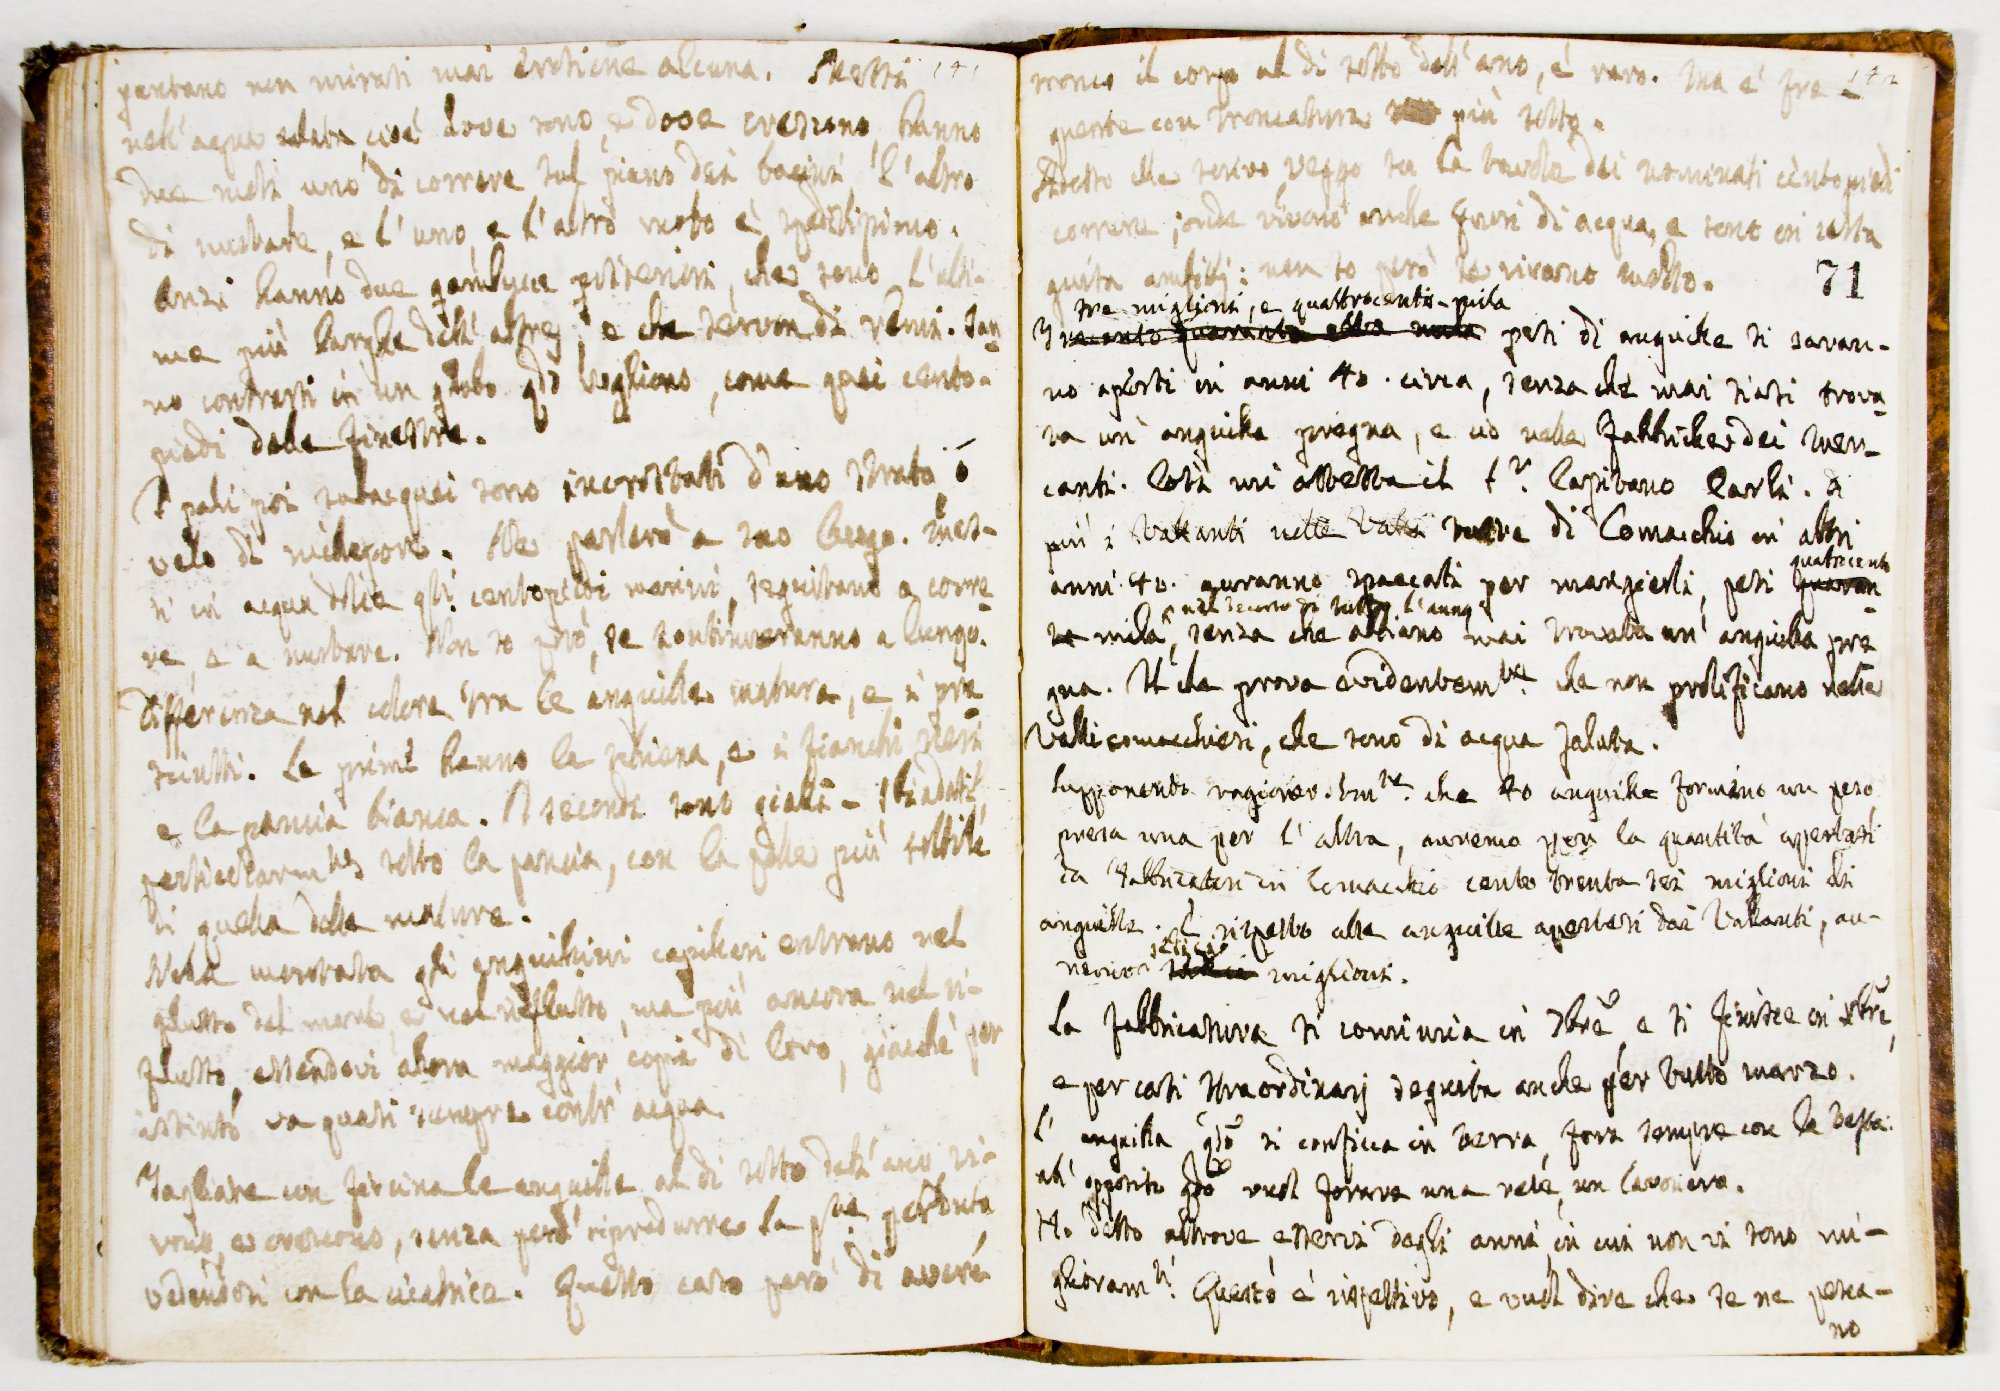 141
nell' acqua salata cioè dove sono, e dove crescono, hanno
due moti, uno di correre sul piano dei bacini, l'altro
di nuotare, e l'uno, e l'altro moto è speditissimo.
Anzi hanno due gambucce posteriori, che sono l'ulti-
me più larghe dell' altre, e che servon di remi. San-
no contrarsi in un globo qdo vogliono, come quei cento-
piedi delle finestre.
I pali poi subacquei sono incrostati d'uno strato, o
velo di millepore. Ne parlerò a suo luogo. Mes-
si in acqua dolce gli centopiedi marini, seguitano a corre-
re, e a nuotare. Non so però, se continueranno a lungo.
Differenza nel colore tra le anguille mature, e i pre
sciutti. Le prime hanno la schiena, e i fianchi neri
e la pancia bianca. I secondi sono gialli - sbiadati
particolarmte sotto la pancia, con la pelle più sottile
di quella delle mature.
Nella montata gli anguillini capillari entrano nel
flusso del mare, e nel riflusso, ma più ancora nel ri-
flusso, essendovi allora maggior copia di loro, giacchè per
istinto va quasi sempre contr' acqua.
Tagliate con fiocina le anguille al di sotto dell' ano vi-
vono, e crescono, senza però riprodurre la pte perduta,
vedendosi con la cicatrice. Questo caso però di avere
142
tronco il corpo al di sotto dell' ano, è raro. Ma è fre-
quente con troncatura più sotto.
Adesso che scrivo, veggo su la tavola dei nominati centopiedi
correre; onde vivono anche fuori di acqua, e sono in certa
guisa amfibj: non so però se vivano molto.
71
tre miglioni, e quattrocento-mila
Trecento quaranta otto mila pesi di anguille si saran-
no aperti in anni 40. circa, senza che mai siasi trova-
ta un' anguilla pregna, e ciò nelle fabbriche dei mer-
canti. Così mi attesta il Sr. Capitano Carli. Di
più i Vallanti nelle Valli di Comacchio in altri
anni 40. avranno spaccati per mangiarli, pesi quattrocento
quaran-
ta mila, nel decorso di tutto l'anno, senza che abbiano mai trovata un' anguilla pre
gna. Il che prova evidentemte. che non prolificano nelle
Valli comacchiesi, che sono di acqua salata.
Supponendo ragionev.lmte. che 40 anguille formino un peso,
presa una per l'altra, avremo per la quantità apertasi
da Fabbricatori in Comacchio cento trenta sei miglioni di
anguille. E rispetto alle anguille apertesi dai Vallanti, av-
sedici
remo miglioni.
La fabbricatura si comincia in 7bre, e si finisce in xbre,
e per casi straordinarj seguita anche per tutto marzo.
L' anguilla qdo si conficca in terra, fora sempre con la testa:
all' opposito qdo vuol forare una rete, un lavoriero.
Ho detto altrove, esservi degli anni, in cui non vi sono mi-
glioramti. Questo è rispettivo, e vuol dire che se ne pesca-
no